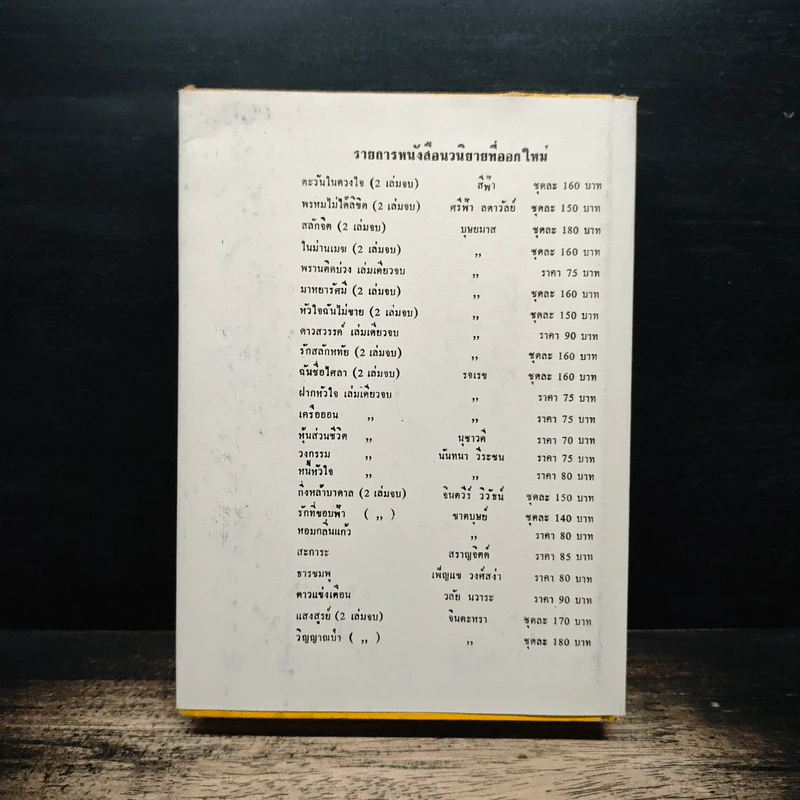 รายการหนังสือนวนิยายที่ออกใหม่
ตะวันในดวงใจ (2 เล่มจบ) สีฟ้า ชุดละ 160 บาท
พรหมไม่ได้ลิขิต (2 เล่มจบ) ศรีฟ้า ลดาวัลย์ ชุดละ 150 บาท
สลักจิต (2 เล่มจบ) บุษยมาส ชุดละ 180 บาท
ในม่านเมฆ (2 เล่มจบ) ,, ชุดละ 160 บาท
พรานติดบ่วง เล่มเดียวจบ ,, ราคา 75 บาท
มาหยารัศมี (2 เล่มจบ) ,, ชุดละ 160 บาท
หัวใจฉันไม่ขาย (2 เล่มจบ) ,, ชุดละ 150 บาท
ดาวสวรรค์ เล่มเดียวจบ ,, ราคา 90 บาท
รักสลักหทัย (2 เล่มจบ) ,, ชุดละ 160 บาท
ฉันชื่อไศลา (2 เล่มจบ) รจเรข ชุดละ 160 บาท
ฝากหัวใจ เล่มเดียวจบ ,, ราคา 75 บาท
เครือออน ,, ,, ราคา 75 บาท
หุ้นส่วนชีวิต ,, นุชาวดี ราคา 70 บาท
วงกรรม ,, นันทนา วีระชน ราคา 75 บาท
หนี้หัวใจ ,, ,, ราคา 80 บาท
กิ่งหล้าบาดาล (2 เล่มจบ) จินตวีร์ วิวัธน์ ชุดละ 150 บาท
รักที่ขอบฟ้า ( ,, ) ชาตบุษย์ ชุดละ 140 บาท
หอมกลิ่นแก้ว ,, ราคา 80 บาท
สะการะ สราญจิตต์ ราคา 85 บาท
ธารชมพู เพ็ญแข วงศ์สง่า ราคา 80 บาท
ดาวแข่งเดือน วลัย นวาระ ราคา 90 บาท
แสงสูรย์ (2 เล่มจบ) จินตะหรา ชุดละ 170 บาท
วิญญาณป่า ( ,, ) ,, ชุดละ 180 บาท